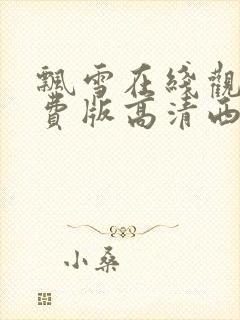 飄雪在綫觀
費版高清西
小桑